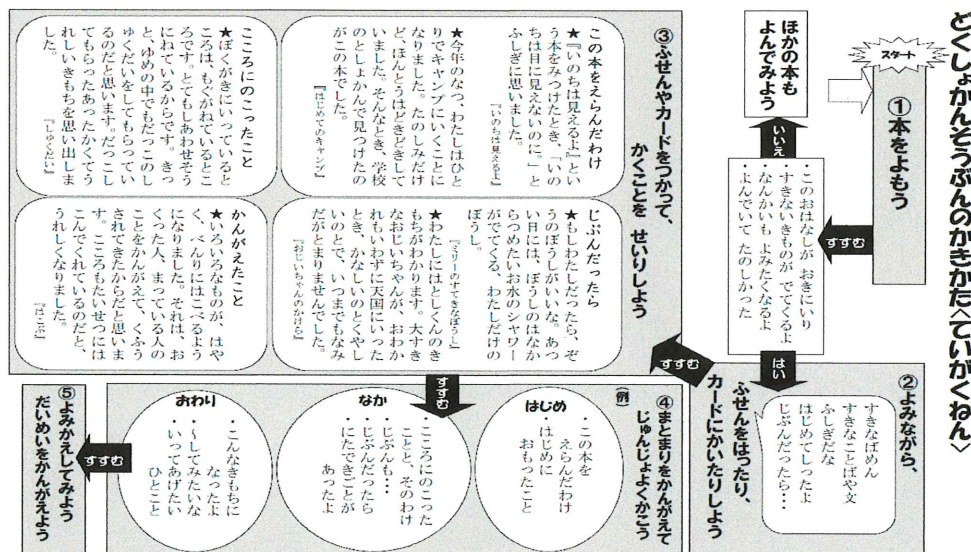 どくしょかんそうぶんのかきかた〈ていがくねん〉
スタート
①本をよもう
すすむ
・このおはなしが おきにいり
・すきないきものが でてくるよ
・なんかいも よみたくなるよ
・よんでいて たのしかった
いいえ
ほかの本も
よんでみよう
はい
②よみながら、
ふせんをはったり、
カードにかいたりしよう
すきなばめん
すきなことばや文
ふしぎだな
はじめてしったよ
じぶんだったら・・・
すすむ
③ふせんやカードをつかって、
かくことを せいりしよう
この本をえらんだわけ
★『いのちは見えるよ』とい
う本をみつけたとき、「いの
ちは目に見えないのに。」と
ふしぎに思いました。
『いのちは見えるよ』
★今年のなつ、わたしはひと
りでキャンプにいくことに
なりました。たのしみだけ
ど、ほんとうはどきどきして
いました。そんなとき、学校
のとしょかんで見つけたの
がこの本でした。
『はじめてのキャンプ』
じぶんだったら
★もしわたしだったら、ぞ
うのぼうしがいいな。あつ
い日には、ぼうしのはなか
らつめたいお水のシャワー
がでてくる、わたしだけの
ぼうし。
『ミリーのすてきなぼうし』
★わたしにはとしくんのき
もちがわかります。大すき
なおじいちゃんが、おわか
れもいわずに天国にいった
とき、かなしいのとくやし
いのとで、いつまでもなみ
だがとまりませんでした。
『おじいちゃんのかげら』
こころにのこったこと
★ぼくがきにいっていると
ころは、もぐがねているとこ
ろです。とてもしあわせそう
にねているからです。きっ
と、ゆめの中でもだっこのし
ゅくだいをしてもらってい
るのだと思います。だっこし
てもらったあったかくてう
れしいきもちを思い出しま
した。
『しゅくだい』
かんがえたこと
★いろいろなものが、はや
く、べんりにはこべるよう
になりました。それは、お
くった人、まっている人の
ことをかんがえて、くふう
されてきたからだと思いま
す。こころもたいせつには
こんでくれているのだと、
うれしくなりました。
『はこぶ』
すすむ
④まとまりをかんがえて
じゅんじょよくかこう
(例)
はじめ
・この本を
えらんだわけ
・はじめに
おもったこと
なか
・こころにのこった
ことと、そのわけ
・じぶんも・・・
・じぶんだったら
・にたできごとが
あったよ
おわり
・こんなきもちに
なったよ
・～してみたいな
・いってあげたい
ひとこと
すすむ
⑤よみかえしてみよう
だいめいをかんがえよう